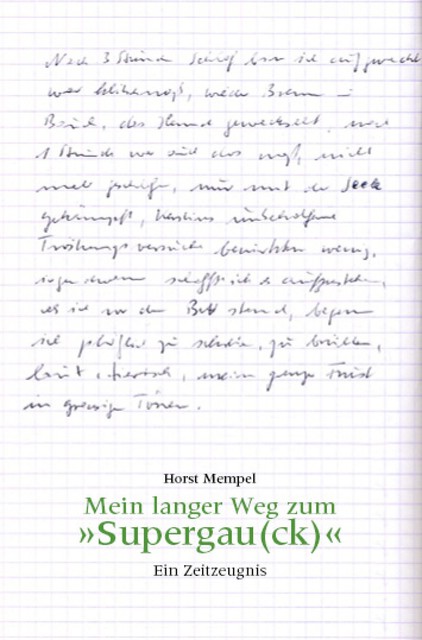 Nach 3 Stunden Schlaf bin ich aufgewacht
war klitschnaß, wieder Brennen im
Bauch, das Hemd gewechselt, nach
1 Stunde war auch das naß, nicht
mehr geschlafen, nur mit der Seele
gekämpft, unbeholfene
Tröstungsversuche bewirkten wenig,
irgendwann schaffte ich es aufzustehen,
als ich vor dem Bett stand, begann
ich plötzlich zu schreien, zu brüllen,
laut, tierisch, mein ganzer Frust
in Tönen.
Horst Mempel
Mein langer Weg zum
»Supergau(ck)«
Ein Zeitzeugnis